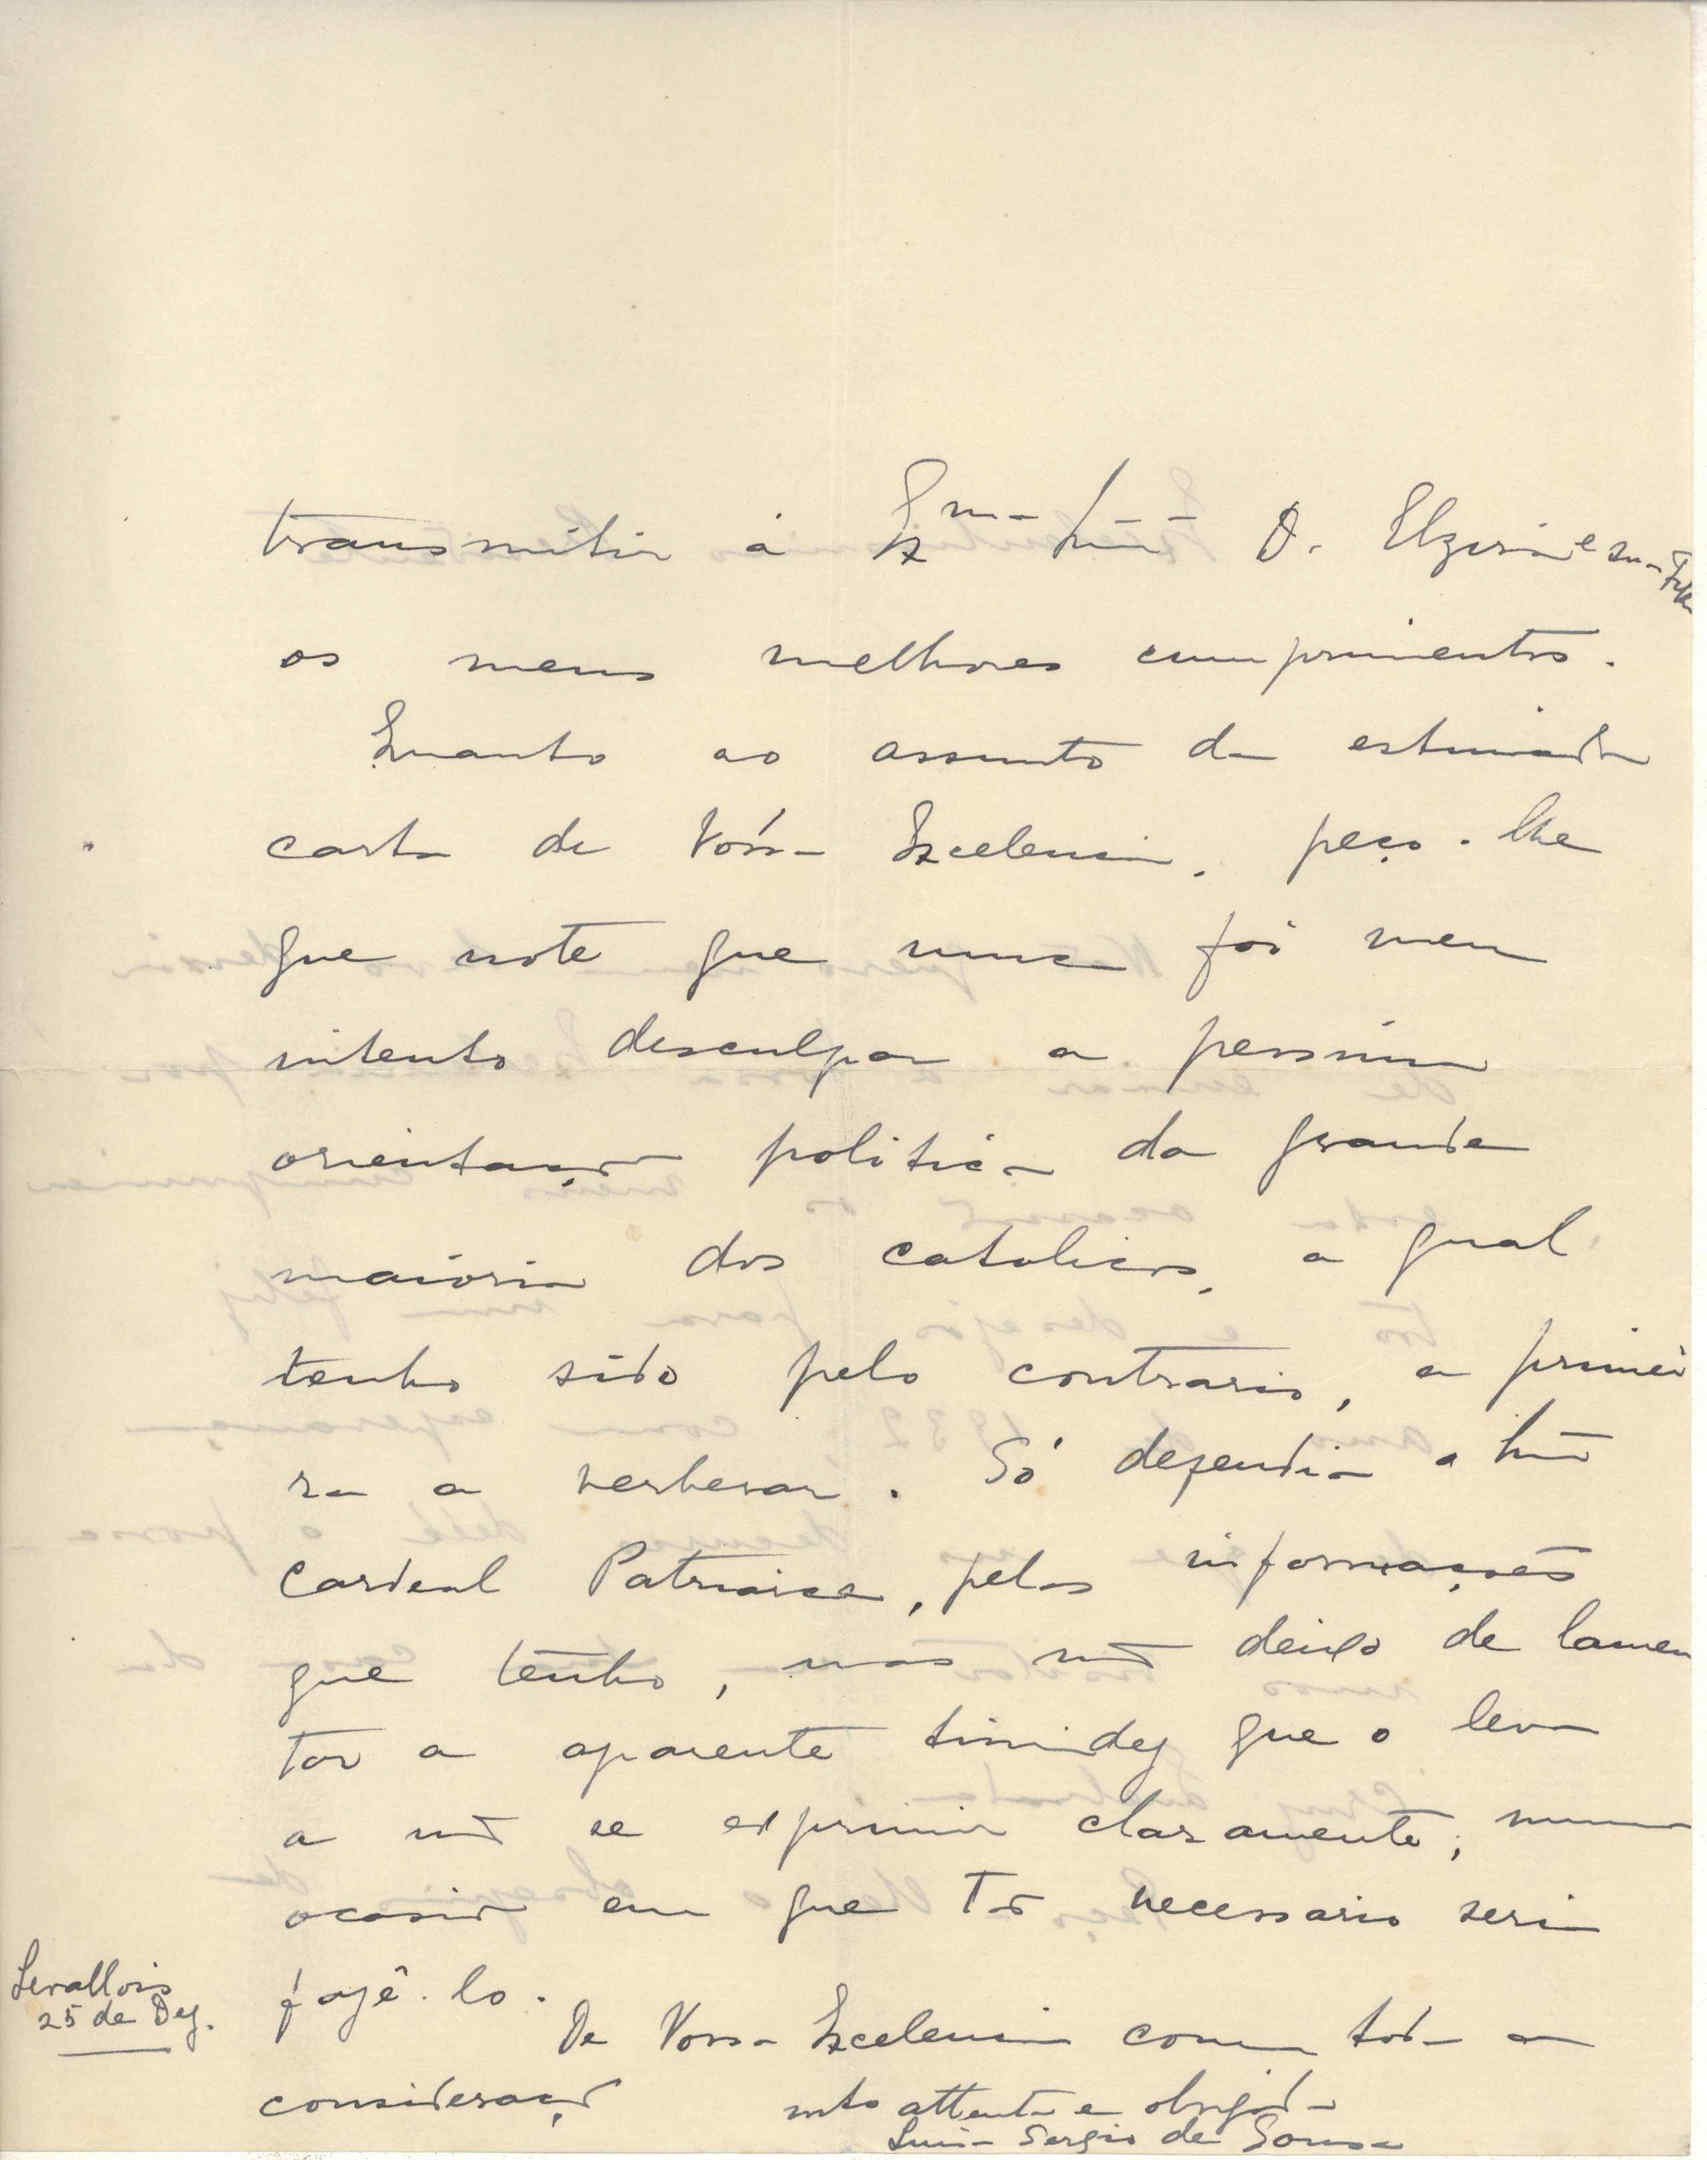 transmitir á Exma Snra D. Elzira e sua
os meus melhores cumprimentos.
Quanto ao assunto da estimada
carta de Vossa Excelencia, peço-lhe
que note que nunca foi meu
intento desculpar a pessima
orientação politica da grande
maioria dos catolicos, a qual
tenho sido pelo contrario, a primei
ra a verberar. Só defendia o Snr
Cardeal Patriarca, pelas informações
que tenho, mas não deixo de lamen
tar a aparente timidez que o leva
a não se exprimir claramente, numa
ocasião em que tão necessario seria
fazê-lo.
Levallois
25 de Dez.
De Vossa Excelencia com toda a
consideração
mto attenta e obrigada
Luisa Sergio de Sousa